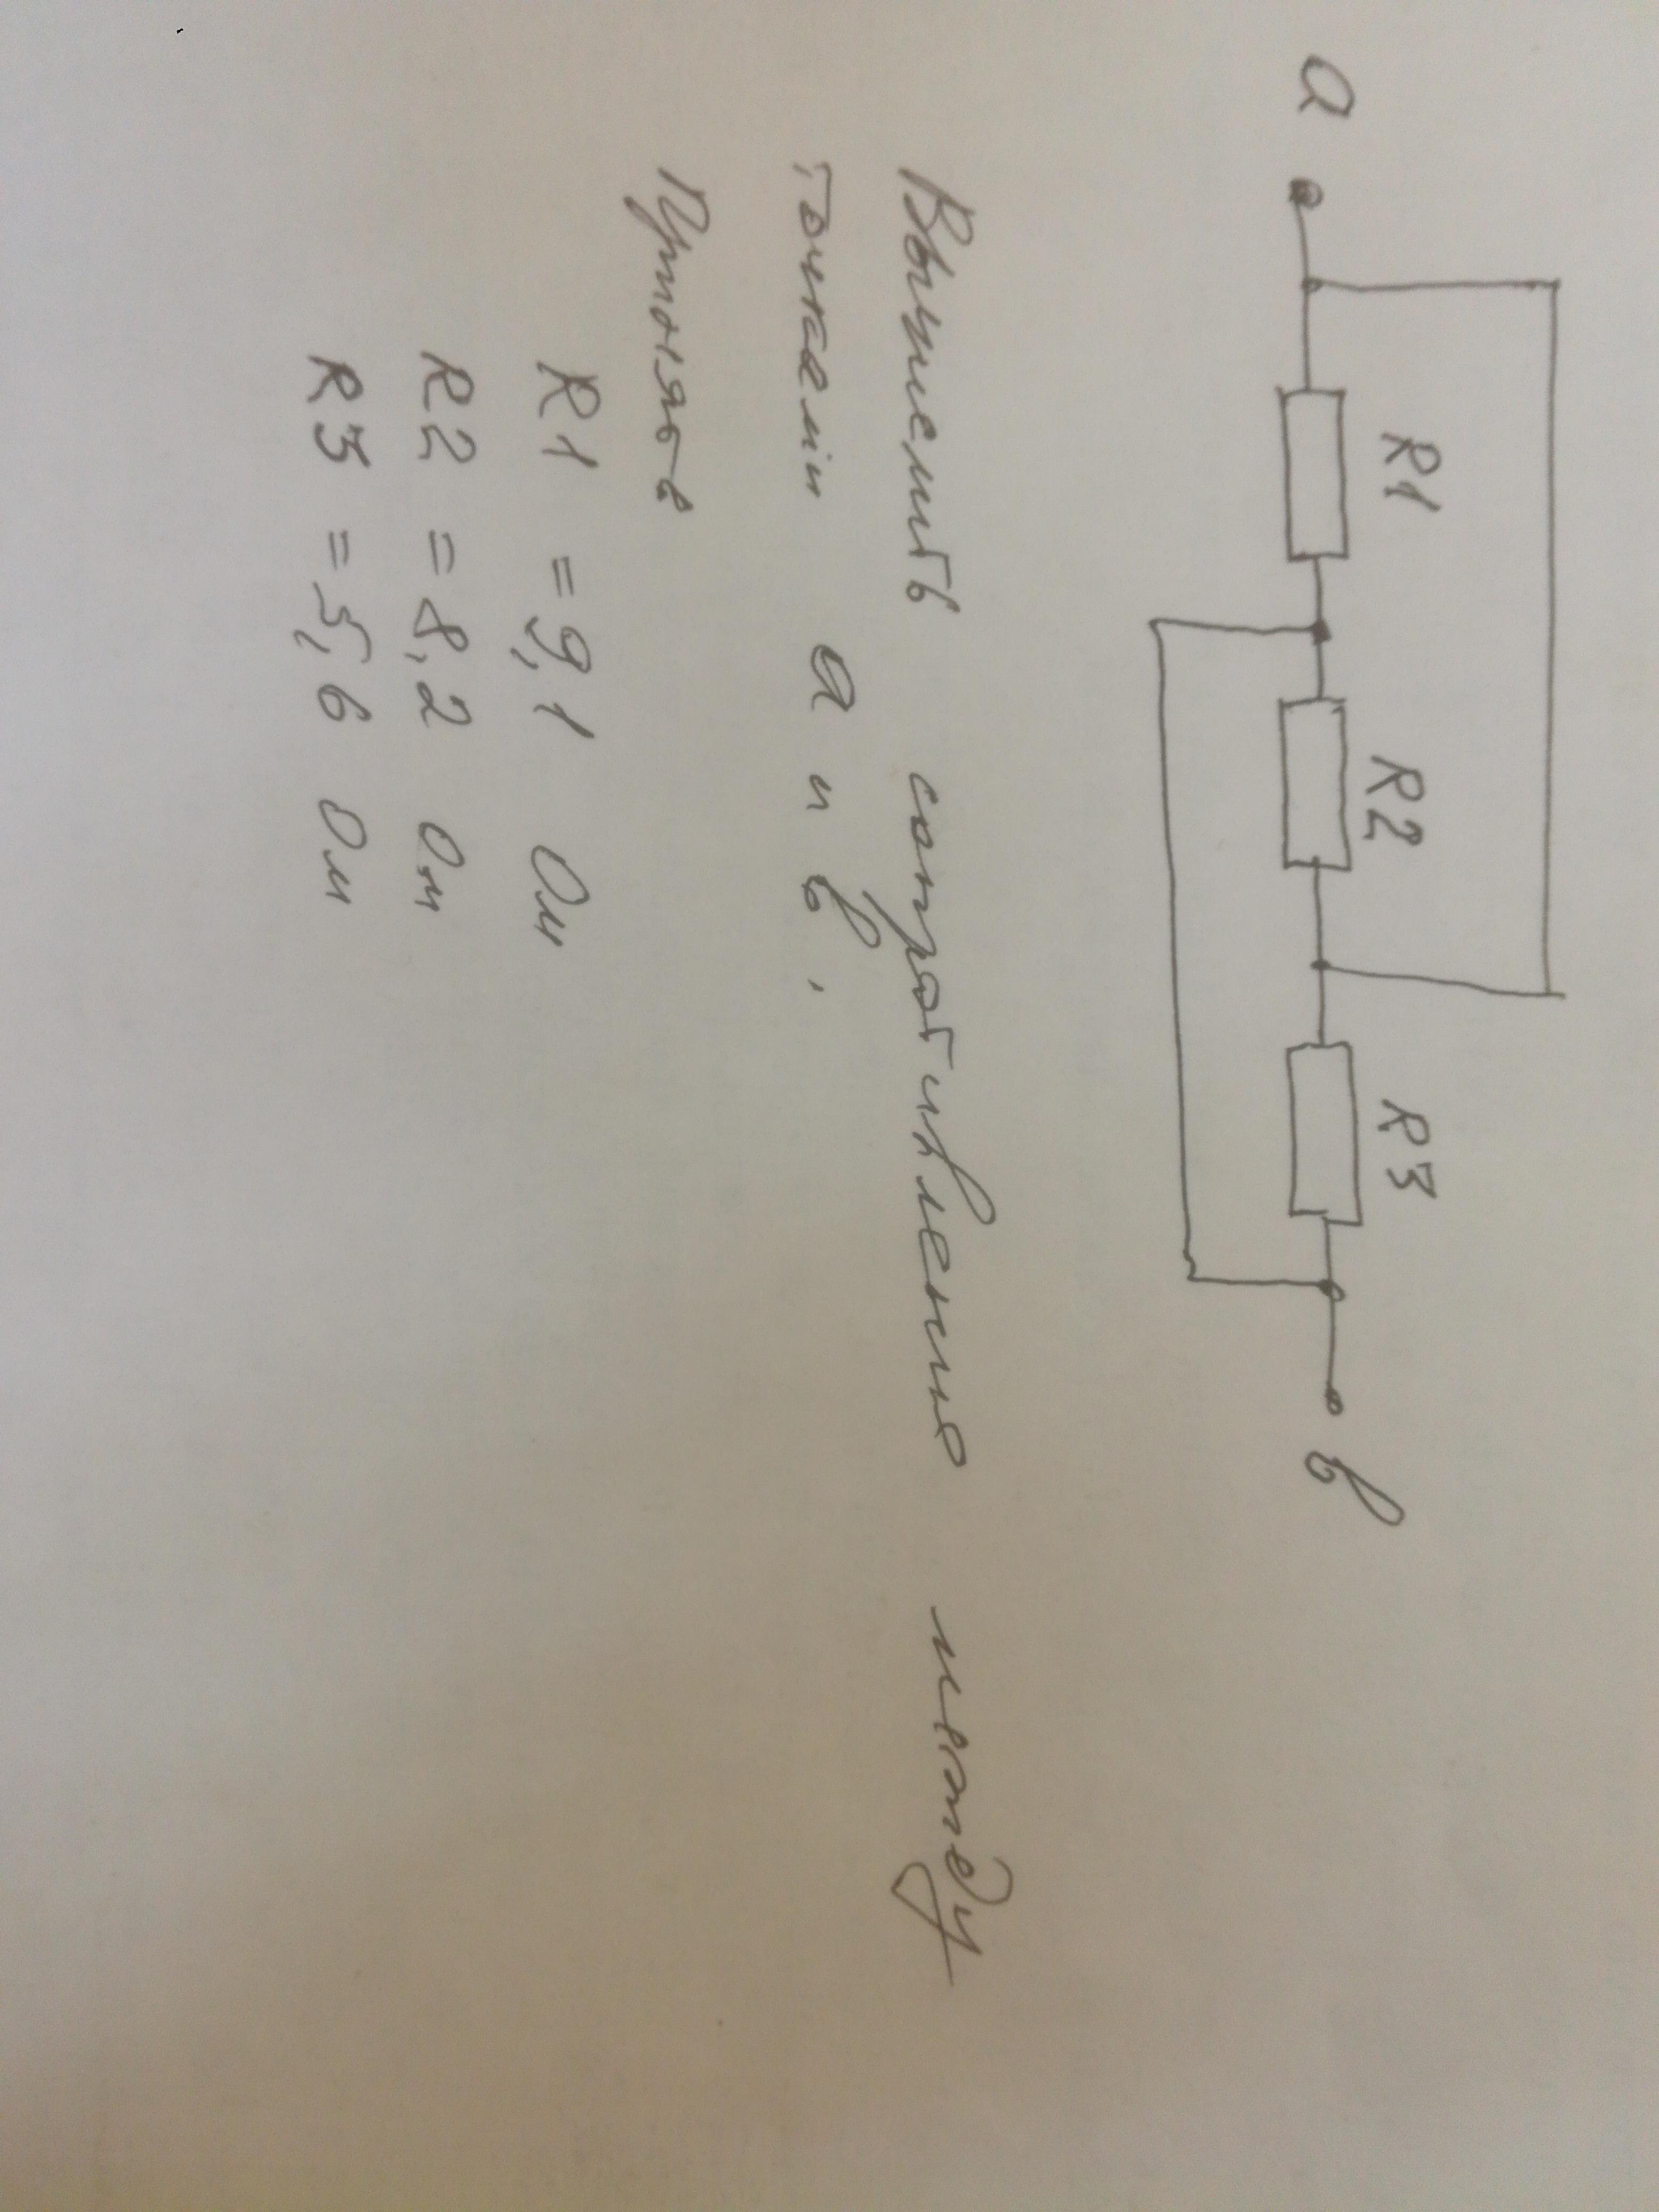 а R1 R2 R3 в
Вычислить сопротивление между
точками а и в,
Принять
R1 = 9,1 Ом
R2 = 8,2 Ом
R3 = 5,6 Ом